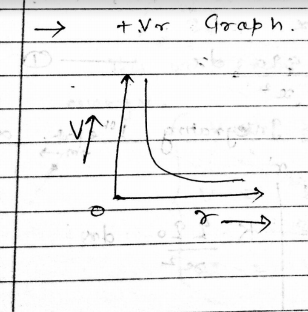 → +.Vr Graph.
V↑
O
r →